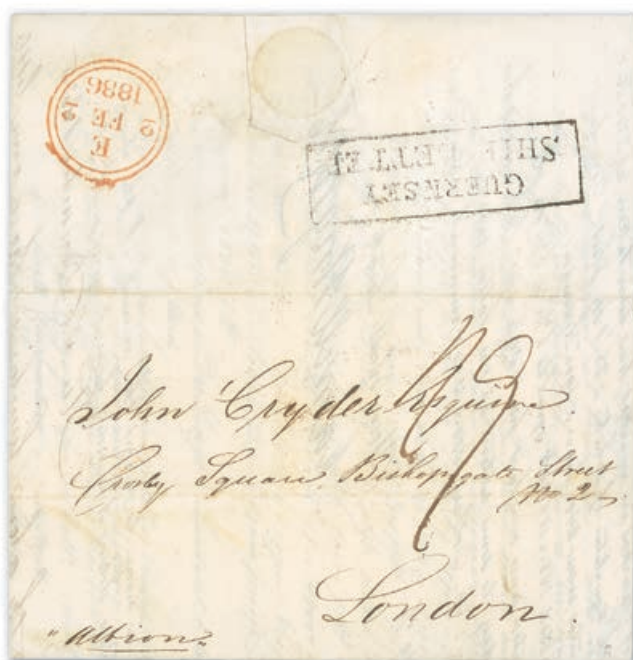 E
12 FE 12
1836
GUERNSEY
SHIP LETTER
John Cryder Esquire.
Crosby Square Bishopsgate Street
No 2
London.
"Albion"